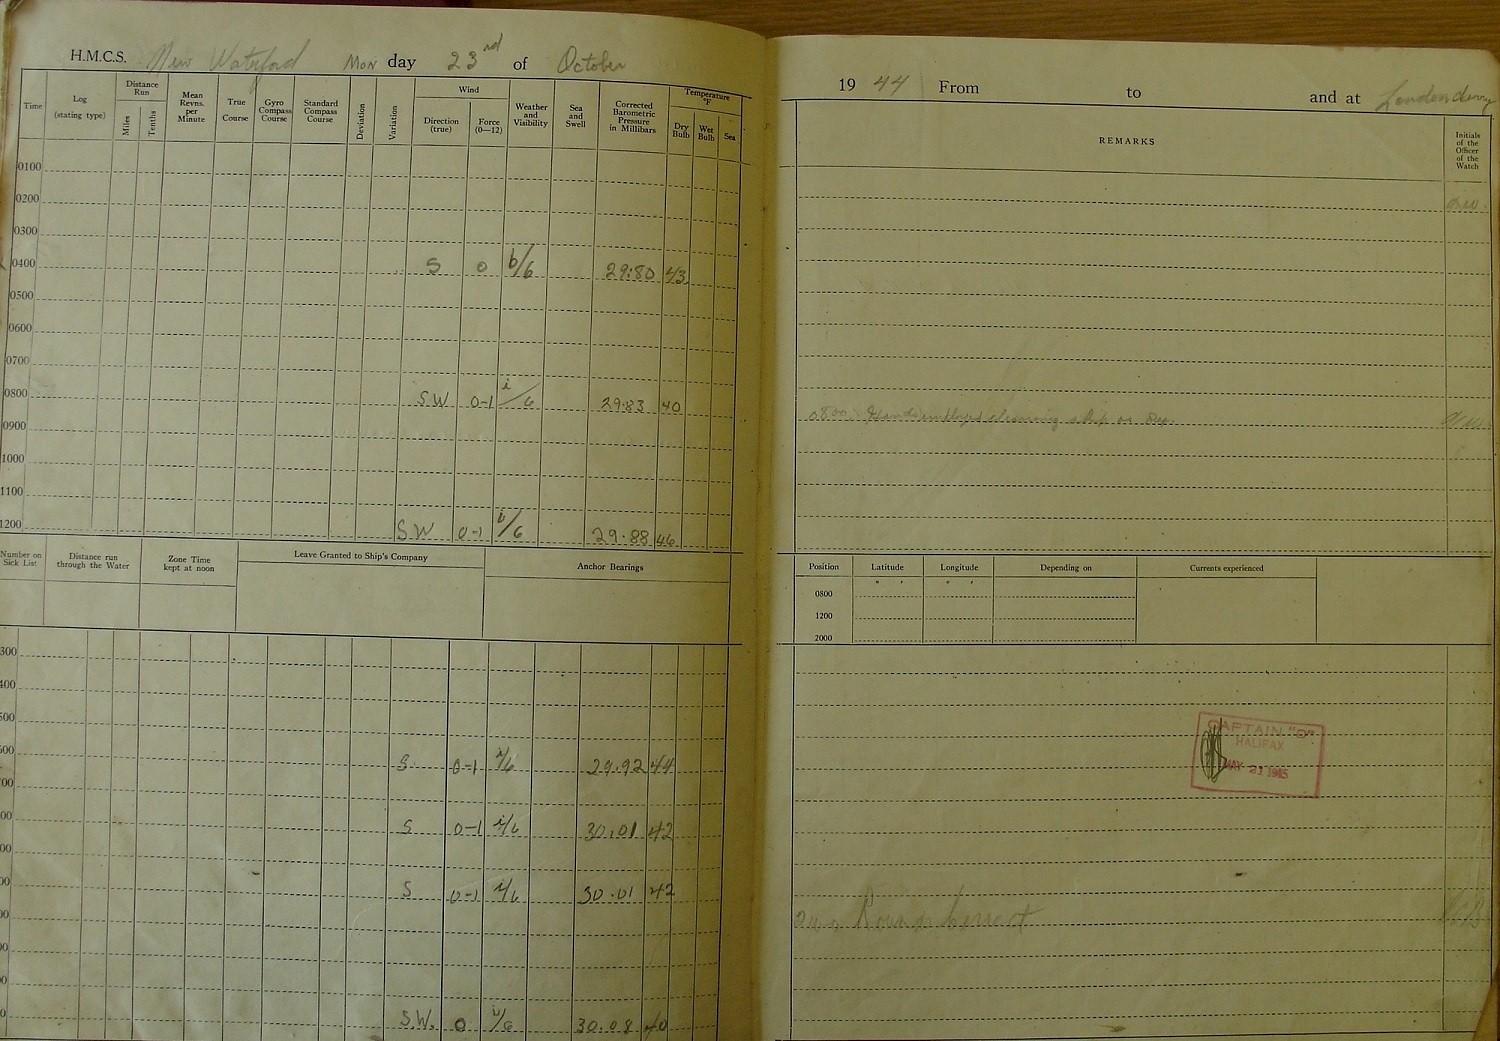 H.M.C.S. New Waterford Mon day 23rd of October
Time
Log (stating type)
Distance Run
Miles
Tenths
Mean Revns. per Minute
True Course
Gyro Compass Course
Standard Compass Course
Deviation
Variation
Wind
Direction (true)
Force (0—12)
Weather and Visibility
Sea and Swell
Corrected Barometric Pressure in Millibars
Temperature °F
Dry Bulb
Wet Bulb
Sea
0100
0200
0300
0400 S 0 b/6 29.80 43
0500
0600
0700
0800 SW 0-1 i/6 29.83 40
0900
1000
1100
1200 SW 0-1 /6 29.88 46
Number on Sick List
Distance run through the Water
Zone Time kept at noon
Leave Granted to Ship's Company
Anchor Bearings
300
400
500
600 S 0-1 /6 29.92 44
00
00 S 0-1 /6 30.01 42
00
00 S 0-1 /6 30.01 42
00
00
0
0 S.W. 0 /6 30.08 40
19 44 From to and at Londonderry
REMARKS
Initials of the Officer of the Watch
0800 Hands employed cleaning ship
Position
Latitude
Longitude
Depending on
Currents experienced
0800
1200
2000
CAPTAIN "D"
HALIFAX
MAY 21 1945
Rounds correct